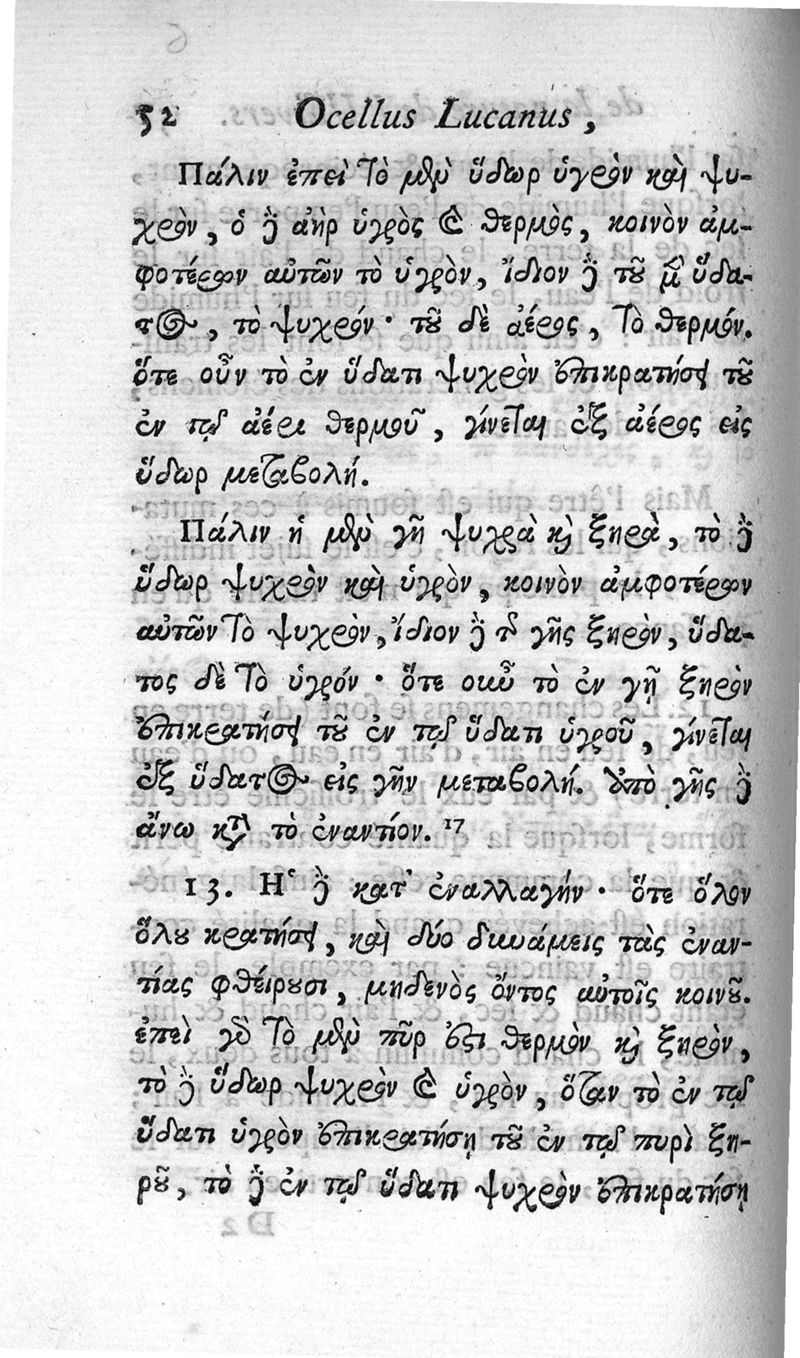 52 Ocellus Lucanus,
Πάλιν ἐπεὶ τὸ μὲν ὕδωρ ὑγρὸν καὶ ψυ-
χρὸν, ὁ δὲ ἀὴρ ὑγρὸς καὶ θερμὸς, κοινὸν ἀμ-
φοτέρων αὐτῶν τὸ ὑγρὸν, ἴδιον δὲ τοῦ μὲν ὕδα-
τος, τὸ ψυχρόν· τοῦ δὲ ἀέρος, τὸ θερμόν.
ὅτε οὖν τὸ ἐν ὕδατι ψυχρὸν ἐπικρατήσει τοῦ
ἐν τῷ ἀέρι θερμοῦ, γίνεται ἐξ ἀέρος εἰς
ὕδωρ μεταβολή.
Πάλιν ἡ μὲν γῆ ψυχρὰ καὶ ξηρὰ, τὸ δὲ
ὕδωρ ψυχρὸν καὶ ὑγρὸν, κοινὸν ἀμφοτέρων
αὐτῶν τὸ ψυχρὸν, ἴδιον δὲ τῆς γῆς ξηρὸν, ὕδα-
τος δὲ τὸ ὑγρόν· ὅτε οὖν τὸ ἐν γῇ ξηρὸν
ἐπικρατήσει τοῦ ἐν τῷ ὕδατι ὑγροῦ, γίνεται
ἐξ ὕδατος εἰς γῆν μεταβολή. ἀπὸ γῆς δὲ
ἄνω κατὰ τὸ ἐναντίον. 17
13. Ἡ δὲ κατ' ἐναλλαγήν· ὅτε ὅλον
ὅλου κρατήσει, καὶ δύο δυνάμεις τὰς ἐναν-
τίας φθείρουσι, μηδενὸς ὄντος αὐτοῖς κοινοῦ.
ἐπεὶ γὰρ τὸ μὲν πῦρ ἐστι θερμὸν καὶ ξηρὸν,
τὸ δὲ ὕδωρ ψυχρὸν καὶ ὑγρὸν, ὅταν τὸ ἐν τῷ
ὕδατι ὑγρὸν ἐπικρατήσῃ τοῦ ἐν τῷ πυρὶ ξη-
ροῦ, τὸ δὲ ἐν τῷ ὕδατι ψυχρὸν ἐπικρατήσῃ